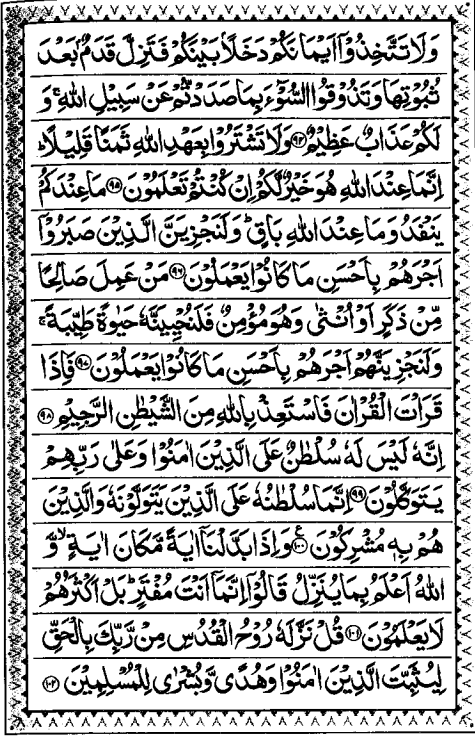 وَلَا تَتَّخِذُوْٓا اَيْمَانَكُمْ دَخَلًاۢ بَيْنَكُمْ فَتَزِلَّ قَدَمٌۢ بَعْدَ
ثُبُوْتِهَا وَتَذُوْقُوا السُّوْٓءَ بِمَا صَدَدْتُّمْ عَنْ سَبِيْلِ اللّٰهِ ۚ وَ
لَكُمْ عَذَابٌ عَظِيْمٌ ﴿۹۴﴾ وَلَا تَشْتَرُوْا بِعَهْدِ اللّٰهِ ثَمَنًا قَلِيْلًا ؕ
اِنَّمَا عِنْدَ اللّٰهِ هُوَ خَيْرٌ لَّكُمْ اِنْ كُنْتُمْ تَعْلَمُوْنَ ﴿۹۵﴾ مَا عِنْدَكُمْ
يَنْفَدُ وَمَا عِنْدَ اللّٰهِ بَاقٍ ؕ وَلَنَجْزِيَنَّ الَّذِيْنَ صَبَرُوْٓا
اَجْرَهُمْ بِاَحْسَنِ مَا كَانُوْا يَعْمَلُوْنَ ﴿۹۶﴾ مَنْ عَمِلَ صَالِحًا
مِّنْ ذَكَرٍ اَوْ اُنْثٰى وَهُوَ مُؤْمِنٌ فَلَنُحْيِيَنَّهٗ حَيٰوةً طَيِّبَةً ۚ
وَلَنَجْزِيَنَّهُمْ اَجْرَهُمْ بِاَحْسَنِ مَا كَانُوْا يَعْمَلُوْنَ ﴿۹۷﴾ فَاِذَا
قَرَاْتَ الْقُرْاٰنَ فَاسْتَعِذْ بِاللّٰهِ مِنَ الشَّيْطٰنِ الرَّجِيْمِ ﴿۹۸﴾
اِنَّهٗ لَيْسَ لَهٗ سُلْطٰنٌ عَلَى الَّذِيْنَ اٰمَنُوْا وَعَلٰى رَبِّهِمْ
يَتَوَكَّلُوْنَ ﴿۹۹﴾ اِنَّمَا سُلْطٰنُهٗ عَلَى الَّذِيْنَ يَتَوَلَّوْنَهٗ وَالَّذِيْنَ
هُمْ بِهٖ مُشْرِكُوْنَ ﴿۱۰۰﴾ ع وَاِذَا بَدَّلْنَآ اٰيَةً مَّكَانَ اٰيَةٍ ۙ وَّ
اللّٰهُ اَعْلَمُ بِمَا يُنَزِّلُ قَالُوْٓا اِنَّمَآ اَنْتَ مُفْتَرٍ ؕ بَلْ اَكْثَرُهُمْ
لَا يَعْلَمُوْنَ ﴿۱۰۱﴾ قُلْ نَزَّلَهٗ رُوْحُ الْقُدُسِ مِنْ رَّبِّكَ بِالْحَقِّ
لِيُثَبِّتَ الَّذِيْنَ اٰمَنُوْا وَهُدًى وَّبُشْرٰى لِلْمُسْلِمِيْنَ ﴿۱۰۲﴾